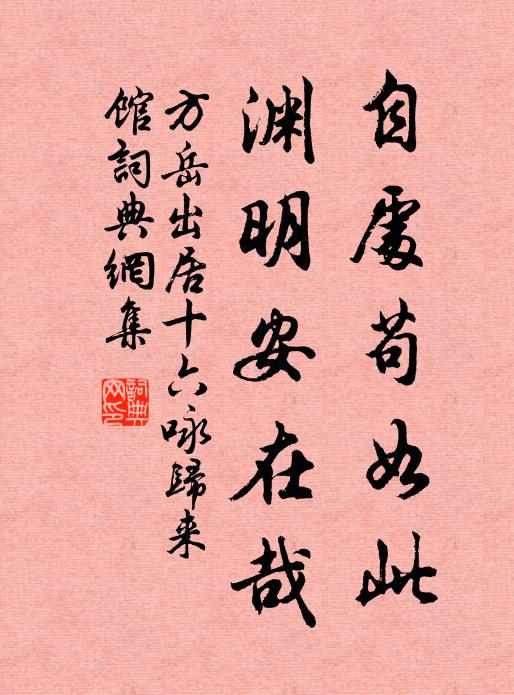 自處苟如此
淵明安在哉
方岳出居十六咏歸来
館詞典網集
詞典
网印